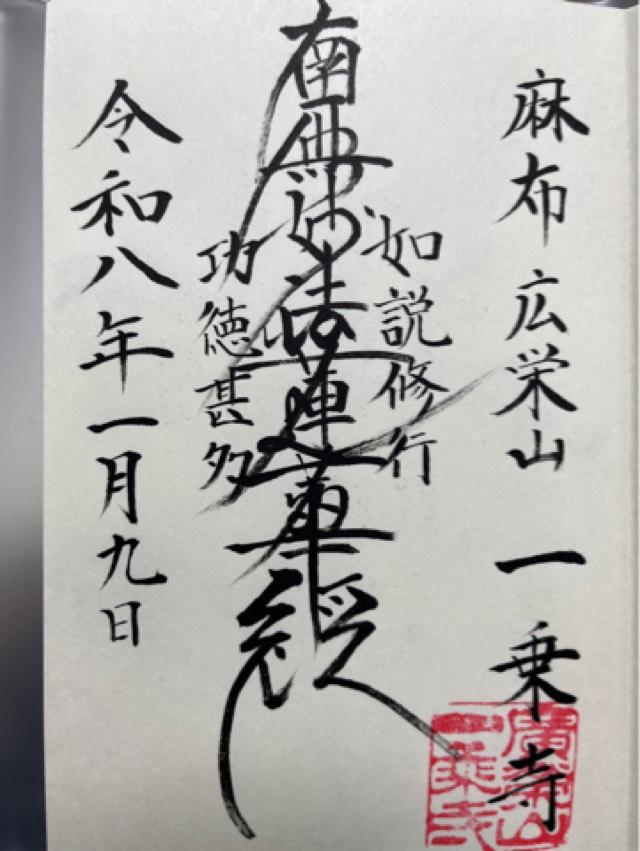 麻布 広栄山 一乗寺
如説修行
南無妙法蓮華経
功徳甚多
令和八年一月九日
廣榮山
一乗寺